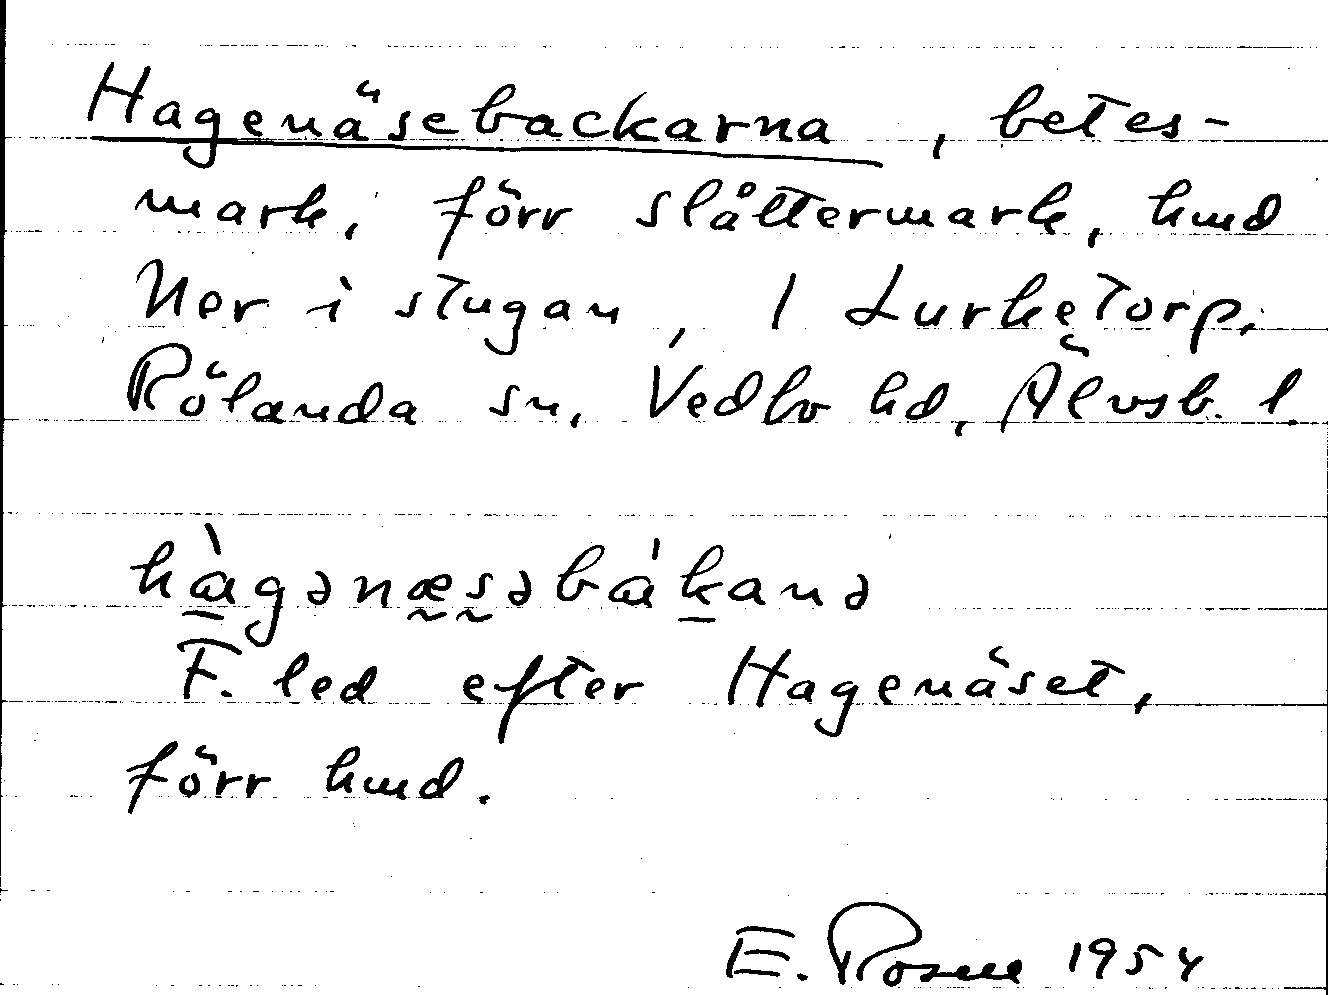 Hagenäsebackarna, betes-
mark, förr slåttermark, hmd
Nor i stugan, 1 Lurketorp.
Rölanda sn, Vedbo hd, Älvsb. l.
hàgənæsəbákanə
F. led efter Hagenäset,
förr hmd.
E. Rosell 1954